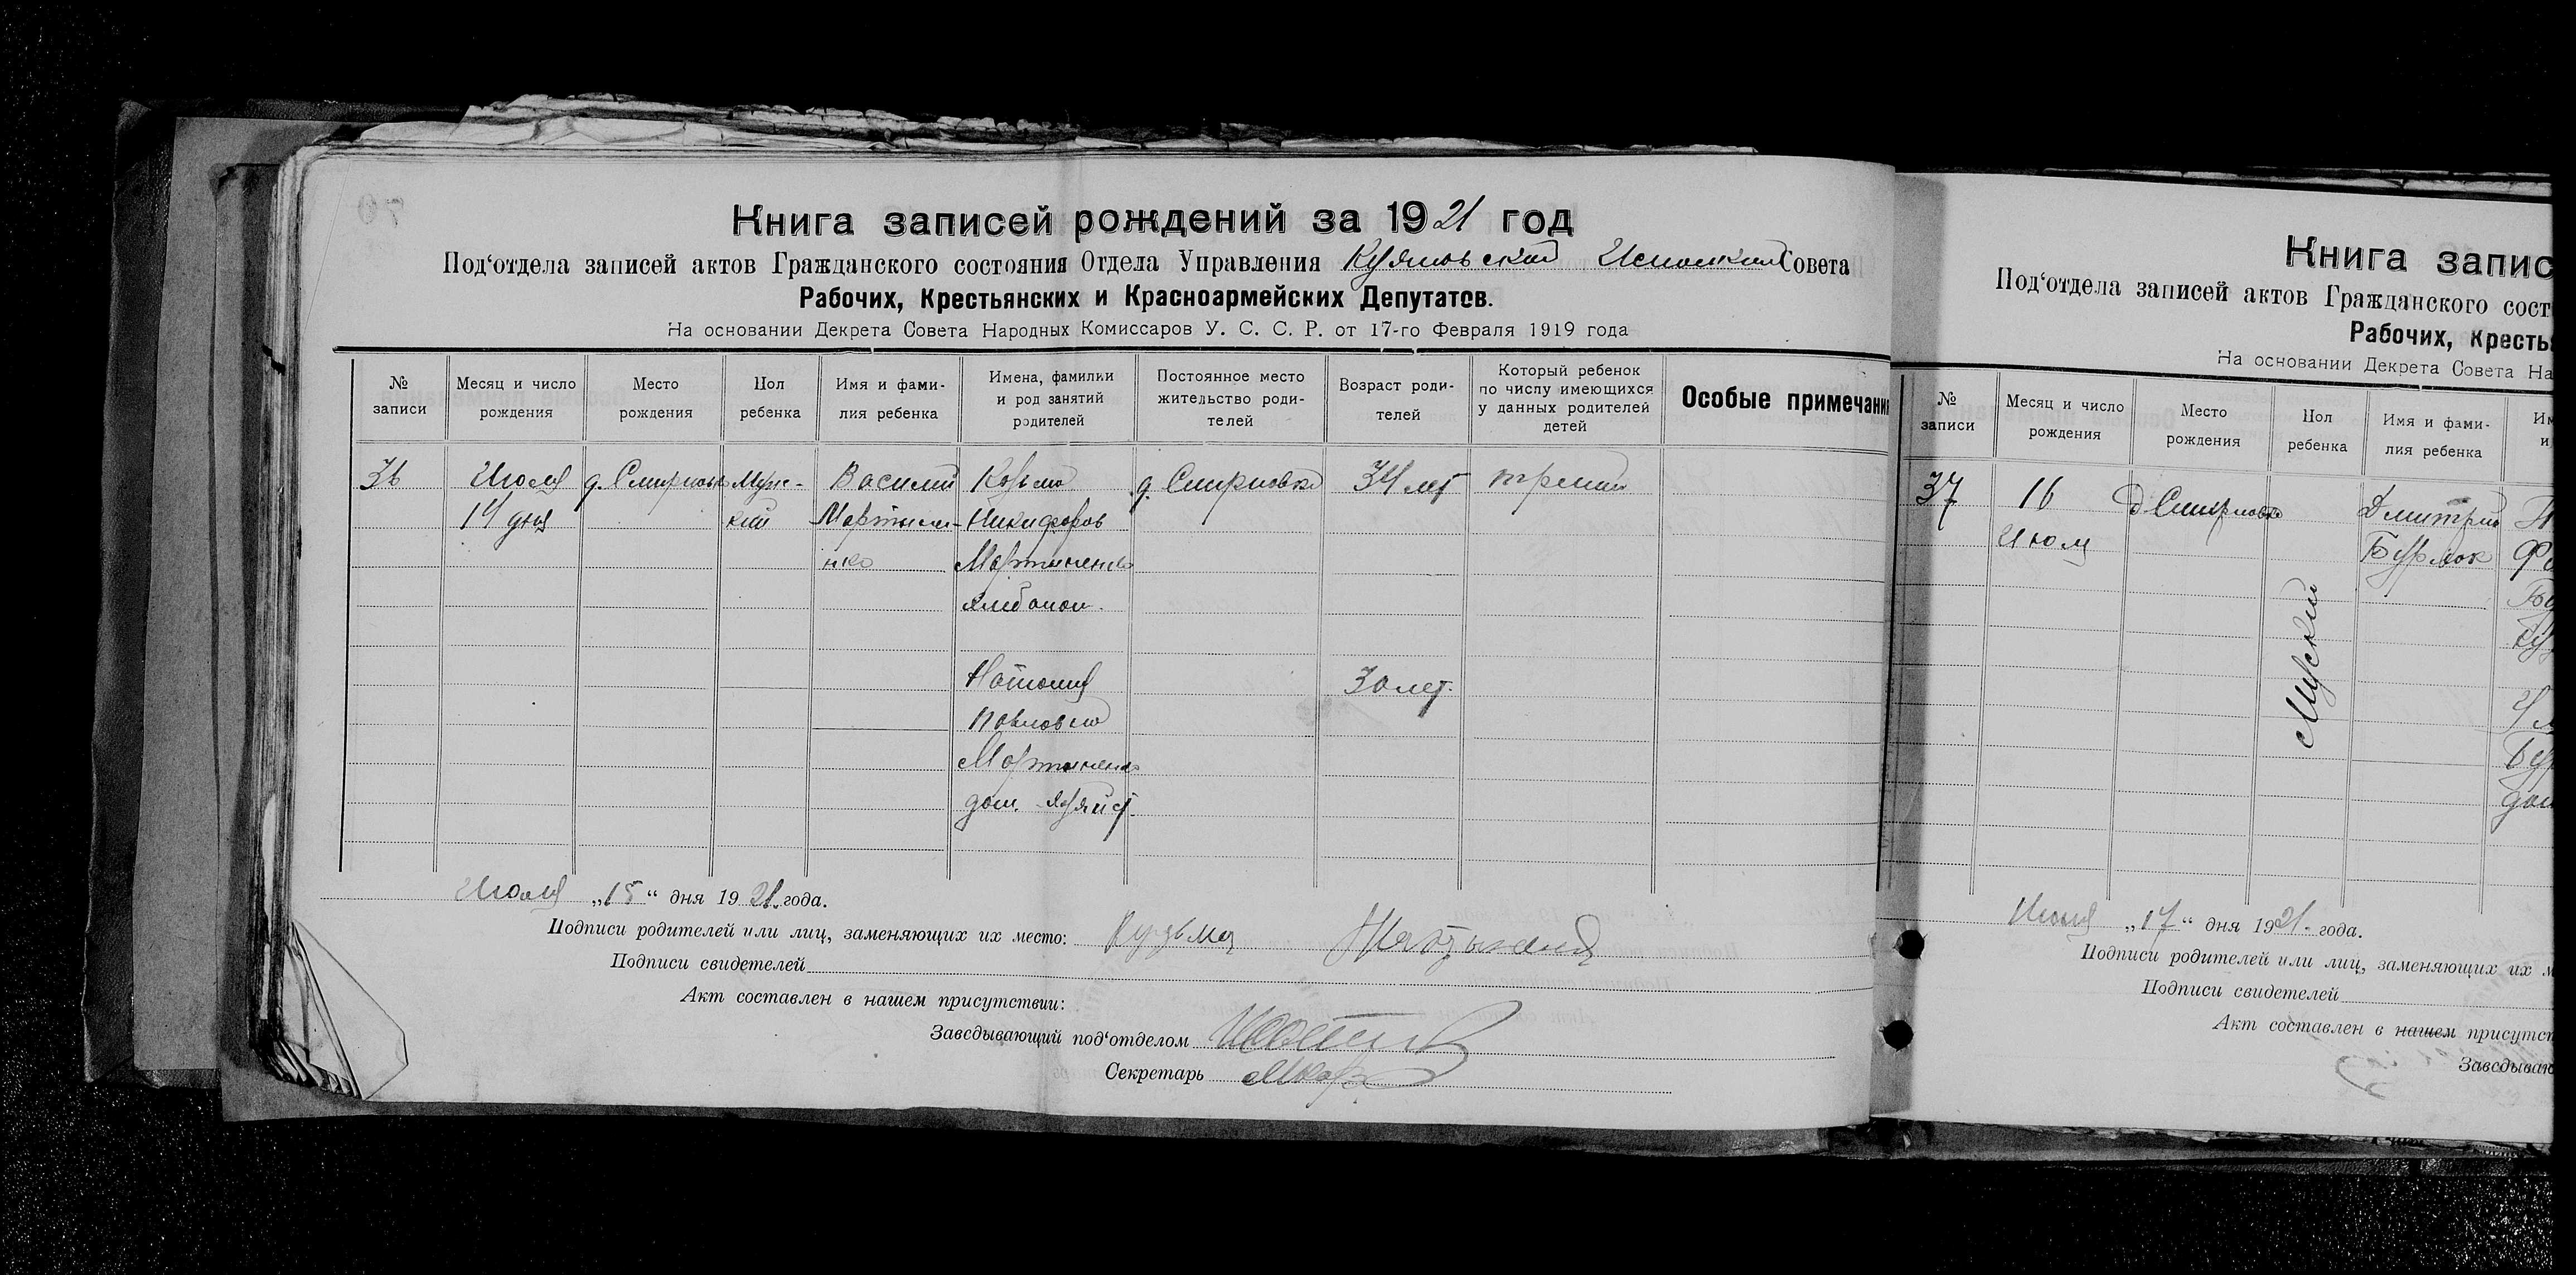 Книга записей рождений за 1921 год
Под‘отдела записей актов Гражданского состояния Отдела Управления Совета
Рабочих, Крестьянских и Красноармейских Депутатов.
На основании Декрета Совета Народных Комиссаров У. С. С. Р. от 17-го Февраля 1919 года
№ записи
Месяц и число рождения
Место рождения
Пол ребенка
Имя и фами-
лия ребенка
Имена, фамилии
и род занятий
родителей
Постоянное место
жительство роди-
телей
Возраст роди-
телей
Который ребенок
по числу имеющихся
у данных родителей
детей
Особые примечани
36
Июля
14 дня
д. Смирновка
Муж-
кий
Василий
Мартыне-
нко
Козьма
Никифоров
Мартиненко
хлебопаш.
Наталия
Павловна
Мартиненко
дом. хозяйст.
д. Смирновка
34 лет
30 лет.
третий
Июля „15“ дня 1921. года.
Подписи родителей или лиц, заменяющих их место: Кузьма
Подписи свидетелей
Акт составлен в нашем присутствии:
Заведывающий под‘отделом
Секретарь
Книга запис
Под‘отдела записей актов Гражданского сост
Рабочих, Кресть
На основании Декрета Совета На
№ записи
Месяц и число рождения
Место рождения
Пол ребенка
Имя и фами-
лия ребенка
37
16
Июля
д Смирновка
Мужский
Дмитрий
Бурлок
Июля „17“ дня 1921. года.
Подписи родителей или лиц, заменяющих их м
Подписи свидетелей
Акт составлен в нашем присутст
Заведываю